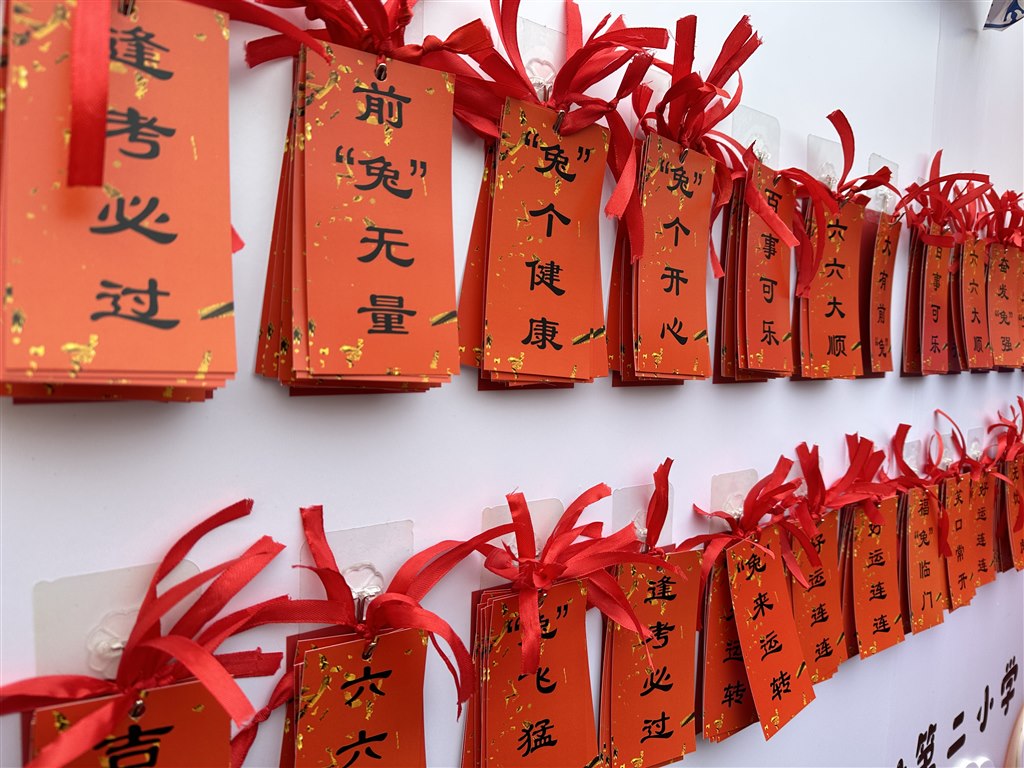 逢考必过
前“兔”无量
“兔”个健康
“兔”个开心
百事可乐
六六大顺
大有前“兔”
百事可乐
六六大顺
奋发“兔”强
吉
六六
“兔”飞猛
逢考必过
运转
“兔”来运转
好运连连
好运连连
福“兔”临门
笑口常开
好运连连
第二小学